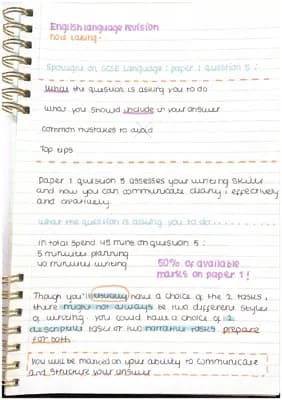 English language revision
note taking.
Spotlight on GCSE Language: paper 1 question 5:
What the question is asking you to do
What you should include in your answer
common mistakes to avoid
Top tips
Paper 1 question 5 assesses your writing skills
and how you can communicate clearly, effectively
and creatively.
What the question is asking you to do
In total spend 45 mins on question 5:
5 minutes planning
40 minutes writing
50% of available
marks on paper 1!
Though you'll usually have a choice of the 2 tasks,
there might not always be two different styles
of writing. you could have a choice of 2
descriptive tasks or two narrative tasks. prepare
for both.
You will be marked on your ability to communicate
and structure your answer